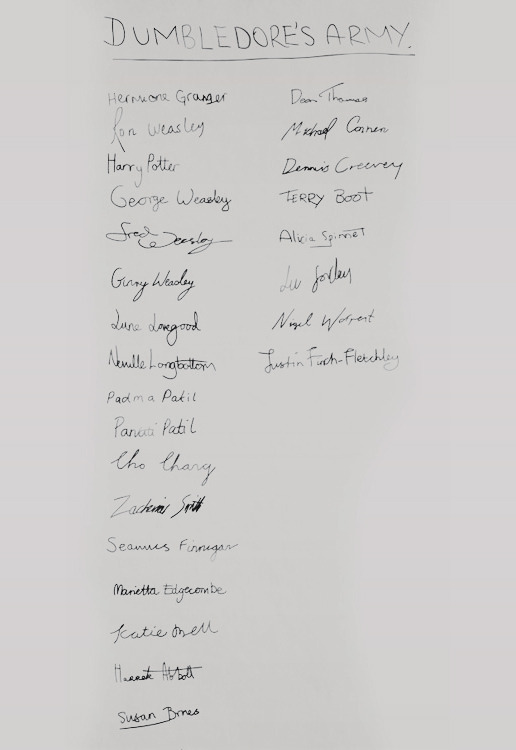 DUMBLEDORE'S ARMY.
Hermione Granger
Ron Weasley
Harry Potter
George Weasley
Fred Weasley
Ginny Weasley
Luna Lovegood
Neville Longbottom
Padma Patil
Parvati Patil
Cho Chang
Zacharias Smith
Seamus Finnigan
Marietta Edgecombe
Katie Bell
Hannah Abbott
Susan Bones
Dean Thomas
Michael Corner
Dennis Creevey
TERRY BOOT
Alicia Spinnet
Jordan
Nigel Wolpert
Justin Finch-Fletchley